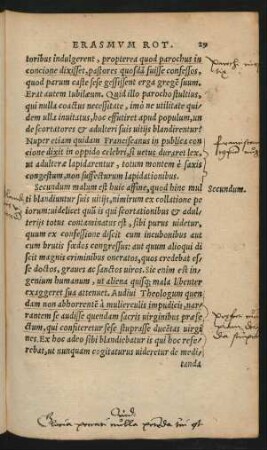 ERASMVM ROT. 29
toribus indulgerent, propterea quod parochus in
concione dixisset, pastores quosdā fuisse confessos,
quod parum caste sese gessissent erga gregē suum.
Erat autem iubilæum. Quid illo parocho stultius,
qui nulla coactus necessitate, imò ne utilitate qui-
dem ulla inuitatus, hoc effutiret apud populum, un
de scortatores & adulteri suis uitijs blandirentur?
Nuper etiam quidam Franciscanus in publica con
cione dixit in oppido celebri, si uetus duraret lex,
ut adulteræ lapidarentur, totum montem è saxis
congestum, non suffecturum lapidationibus.
Secundum malum est huic affine, quod hinc mul Secundum.
ti blandiuntur suis uitijs, nimirum ex collatione pe
iorum: ut audiēt quū is qui scortationibus & adul-
terijs totus contaminatus est, sibi purus uidetur,
quum ex confessione discit cum incubonibus aut
cum brutis fœdos congressus: aut quum aliquo di
scit magnis criminibus oneratos, quos credebat es-
se doctos, graues ac sanctos uiros. Sic enim est in-
genium humanum, ut aliena quisq; mala libenter
exaggeret sua attenuet. Audiui Theologum quen
dam non abhorrentē à mulierculis impudicis, nar-
rantem se audisse quendam sacris uirginibus præfe-
ctum, qui confiteretur sese stuprasse ducētas uirgi
nes. Ex hoc adeo sibi blandiebatur is qui hoc refe-
rebat, ut nunquam cogitaturus uideretur de medi-
tanda